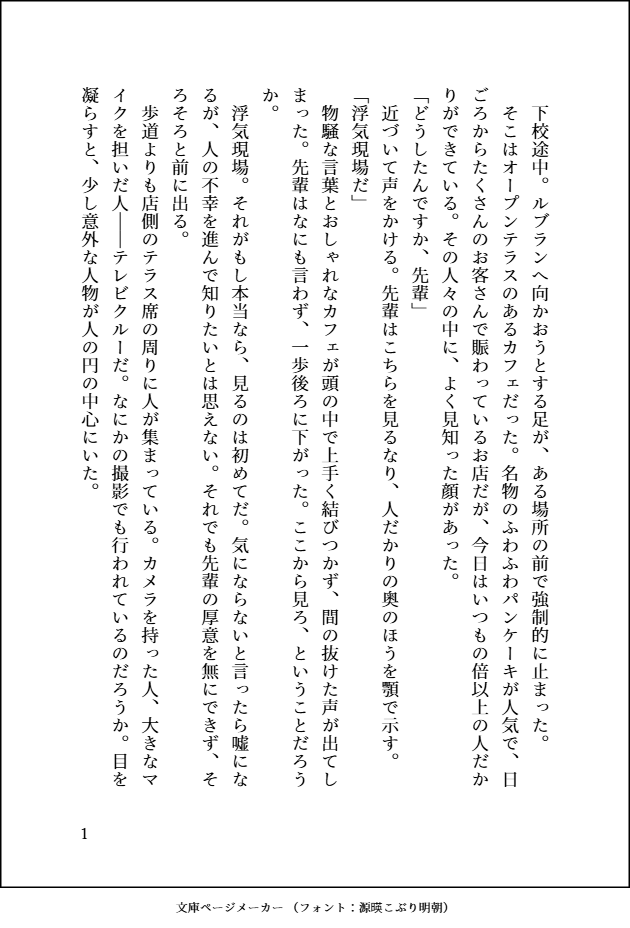 下校途中。ルブランへ向かおうとする足が、ある場所の前で強制的に止まった。
そこはオープンテラスのあるカフェだった。名物のふわふわパンケーキが人気で、日
ごろからたくさんのお客さんで賑わっているお店だが、今日はいつもの倍以上の人だか
りができている。その人々の中に、よく見知った顔があった。
「どうしたんですか、先輩」
近づいて声をかける。先輩はこちらを見るなり、人だかりの奥のほうを顎で示す。
「浮気現場だ」
物騒な言葉とおしゃれなカフェが頭の中で上手く結びつかず、間の抜けた声が出てし
まった。先輩はなにも言わず、一歩後ろに下がった。ここから見ろ、ということだろう
か。
浮気現場。それがもし本当なら、見るのは初めてだ。気にならないと言ったら嘘にな
るが、人の不幸を進んで知りたいとは思えない。それでも先輩の厚意を無にできず、そ
ろそろと前に出る。
歩道よりも店側のテラス席の周りに人が集まっている。カメラを持った人、大きなマ
イクを担いだ人――テレビクルーだ。なにかの撮影でも行われているのだろうか。目を
凝らすと、少し意外な人物が人の円の中心にいた。
1
文庫ページメーカー（フォント：源暎こぶり明朝）